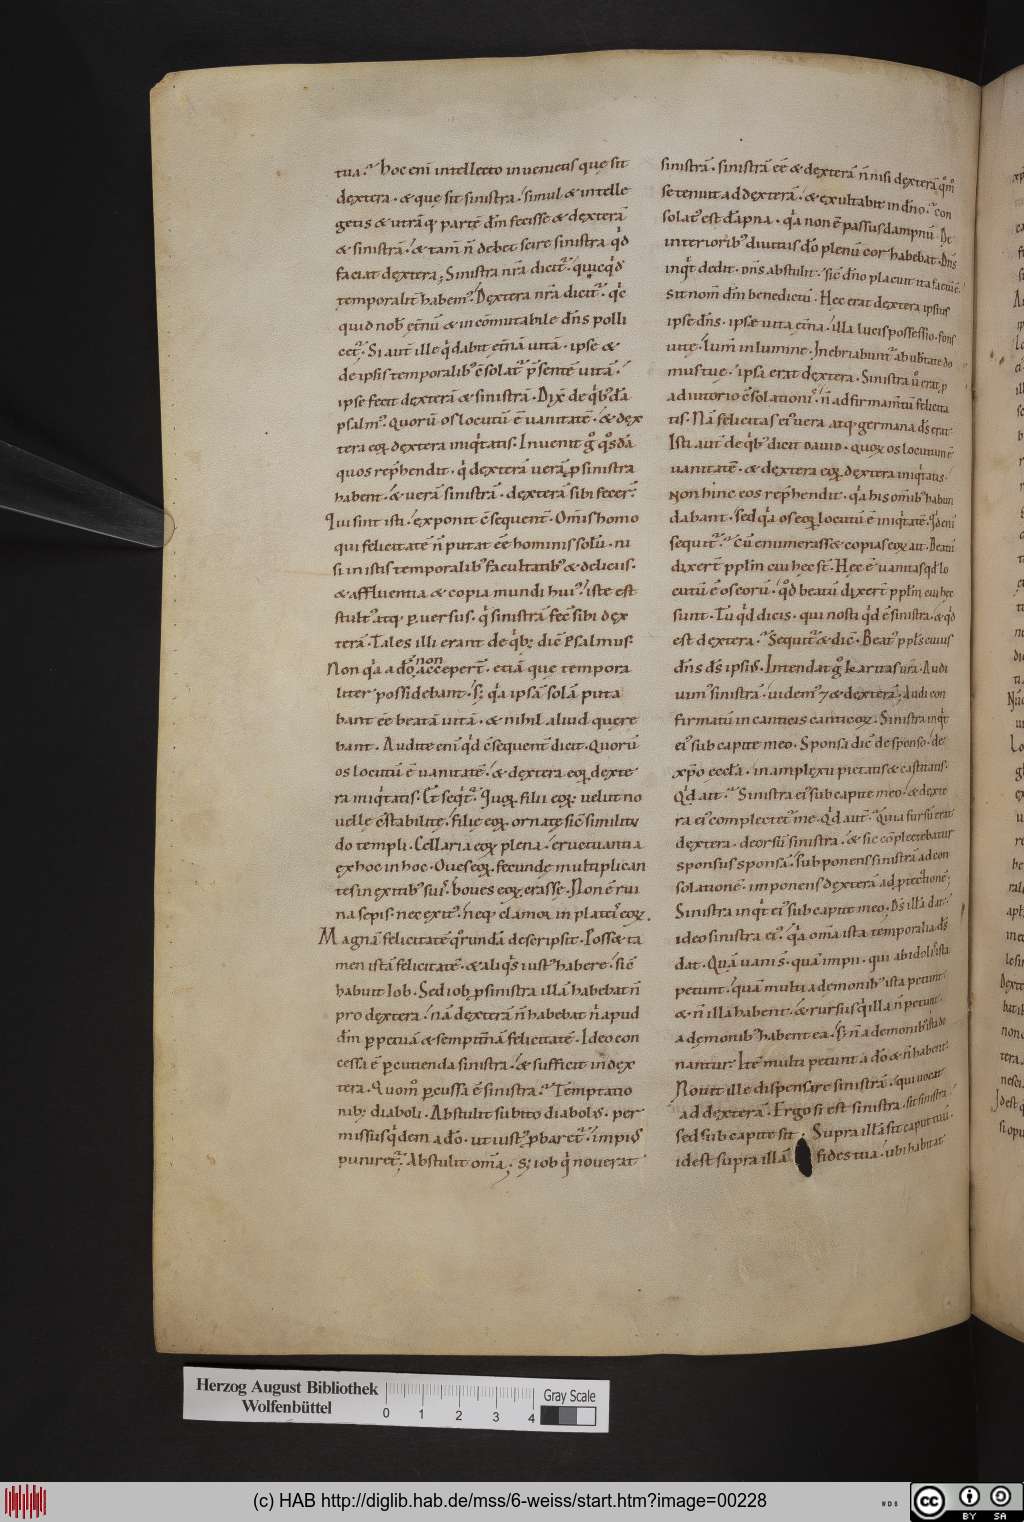 tua? Hoc enī intellecto inuenietis quę sit
dextera · & que sit sinistra · simul & intelle
getis & utrāq; partē dn̄m fecisse & dexterā
& sinistrā · & tam̄ n̄ debet scire sinistra qd̄
faciat dextera; Sinistra nr̄a dicit̄ · quicqd̄
temporalit̄ habem᾽. Dextera nr̄a dicit̄ · qc̄
quid nob̄ etn̄ū & incōmutabile dn̄s polli
cet̄ · Si aut̄ ille qī dabit etn̄ā uitā · ipse &
de ipsis temporalib᾽ c̄solat̄ p̄sentē uitā ·
ipse fecit dexterā & sinistrā · Dix̄ de qb᾽dā
psalm᾽ · Quorū os locutū ē uanitatē · & dex
tera eoꝝ dextera iniqtatis · Inuenit g᾽ qosdā
quos rep̄hendit · qi dexterā uerā ꝓ sinistra
habent · & uerā sinistrā · dexterā sibi fecer̄ ·
Qui sint isti · exponit c̄sequent̄ · Om̄is homo
qui felicitatē n̄ putat ēe hominis solū · ni
si in istis temporalib᾽ facultatib᾽ & deliciis ·
& affluentia & copia mundi hui᾽ · iste est
stult᾽ atq· ꝑuersus · qi sinistrā fec̄ sibi dex
terā · Tales illi erant de qb; dic̄ psalmus ·
Non qa a dō non accepert̄ · etiā que tempora
liter possidebant · s; qa ipsā solā puta
bant ēe beatā uitā · & nihil aliud quęre
bant · Audite enī qd̄ c̄sequent̄ dicit · Quorū
os locutū ē uanitatē · & dextera eoꝝ dexte
ra iniqtatis · Et seqt̄ · Quoꝝ filii eoꝝ uelut no
uelle c̄stabilite · filie eoꝝ ornate sic̄ similitu
do templi · Cellaria eoꝝ plena · eructuantia
ex hoc in hoc · Oues eoꝝ fecunde multiplican
tes in exitib᾽ suis · boues eoꝝ crasse · Non ē rui
na sepis · nec exit᾽ · neq; clamor in plateis eoꝝ ·
Magnā felicitatē qrundā descripsit · Possē ta
men istā felicitatē · & aliqs iust᾽ habere · sic̄
habuit Iob · Sed iob ꝓ sinistra illā habebat n̄
pro dextera · nā dexterā n̄ habebat n̄ apud
dm̄ ꝑpetuā & sempitn̄ā felicitatē · Ideo con
cessa ē ꝑcutienda sinistra · & sufficit in dex
tera · Quom° ꝑcussa ē sinistra? Temptatio
nib; diaboli · Abstulit subito diabol᾽ · per
missus qdem a dō · ut iust᾽ ꝓbaret̄ · impi᾽
puniret̄; Abstulit om̄ia · S; iob qi nouerat
sinistrā · sinistrā ēe & dexterā n̄ nisi dexterā
se tenuit ad dexterā · & exultabit in dn̄o · con
solat᾽ est · qa non ē passus dampnū · De
interiorib᾽ diuitiis dō plenū cor habebat · Dn̄s
inqt dedit · dn̄s abstulit · sic̄ dn̄o placuit ita factū ē ·
sit nom̄ dn̄i benedictū · Hęc erat dextera ipsius
ipse dn̄s · ipsę uita etn̄a · illa lucis possessio · fons
uitę · lum̄ in lumine · Inebriabunt̄ ab ub̄tate do
mus tuę · ipsa erat dextera · Sinistra u° erat p̄
adiutorio c̄solationis · n̄ ad firmam̄tū felicita
tis · Nā felicitas ei᾽ uera atq· germana ds̄ erat ·
Isti aut̄ de qb᾽ dicit dauid · quoꝝ os locutum ē
uanitatē · & dextera eoꝝ dextera iniqtatis ·
Non hinc eos rep̄hendit · qa his om̄ib᾽ habun
dabant · sed qa os eoꝝ locutū ē iniqtatē · Qd̄ enī
sequit̄? Cū enumerass& copias eoꝝ ait · Beatū
dixert̄ pplm̄ cui hęc st̄ · Hęc ē uanitas qd̄ lo
cutū ē os eorū · qd̄ beatū dixert̄ pplm̄ cui hęc
sunt · Tu qd̄ dicis · qui nosti qd̄ ē sinistra · & qd̄
est dextera? Sequit̄ & dic̄ · Beat᾽ ppls cuius
dn̄s ds̄ ipsi᾽ · Intendat g᾽ karitas ur̄a · Audi
uim᾽ sinistrā · uidem᾽ & dexterā; Audi con
firmatū in canticis canticoꝝ · Sinistra inqt
ei᾽ sub capite meo · Sponsa dic̄ de sponso · de
xp̄o ęccła · in amplexu pietatis & castitatis ·
Qd̄ ait? Sinistra ei᾽ sub capite meo · & dexte
ra ei᾽ complectet̄ me · Qd̄ aut̄? Quia sursū erat
dextera · deorsū sinistra · & sic cōplectebatur
sponsus sponsā · sub ponens sinistrā ad con
solationē · imponens dexterā ad ꝓtectionē;
Sinistra inqt ei᾽ sub capite meo · Ds̄ illā dat ·
ideo sinistra ei᾽ · qa om̄ia ista temporalia ds̄
dat · Quā uani s̄ · quā impii · qui ab idolis ista
petunt · quā multi a demonib᾽ ista petunt
& n̄ illa habent · & rursus qi illa n̄ petunt
a demonib᾽ habent ea · s; n̄ a demonib᾽ ista do
nantur · Itē multi petunt a dō & n̄ habent ·
Nouit ille dispensare sinistrā · qui uocat
ad dexterā · Ergo si est sinistra · sit sinistra
sed sub capite sit · Supra illā sit caput tuū ·
id est supra illā fides tua · ubi habitat
Herzog August Bibliothek
Wolfenbüttel
0 1 2 3 4
Gray Scale
(c) HAB http://diglib.hab.de/mss/6-weiss/start.htm?image=00228
WDB
cc BY SA